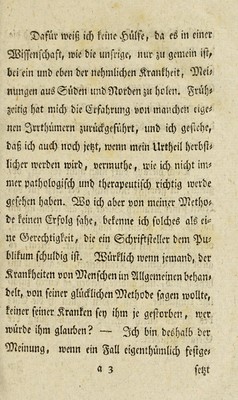 Dafür weiß ich keine Hülfe, da es in einer
Wissenschaft, wie die unsrige, nur zu gemein ist,
bei ein und eben der nehmlichen Krankheit, Mei-
nungen aus Süden und Norden zu holen. Früh-
zeitig hat mich die Erfahrung von manchen eige-
nen Irrthümern zurückgeführt, und ich gestehe,
daß ich auch noch jetzt, wenn mein Urtheil herbst-
licher werden wird, vermuthe, wie ich nicht im-
mer pathologisch und therapeutisch richtig werde
gesehen haben. Wo ich aber von meiner Metho-
de keinen Erfolg sahe, bekenne ich solches als ei-
ne Gerechtigkeit, die ein Schriftsteller dem Pu-
blikum schuldig ist. Würklich wenn jemand, der
Krankheiten von Menschen im Allgemeinen behan-
delt, von seiner glücklichen Methode sagen wollte,
keiner seiner Kranken sey ihm je gestorben, wer
würde ihm glauben? — Ich bin deshalb der
Meinung, wenn ein Fall eigenthümlich festge-
a 3 setzt